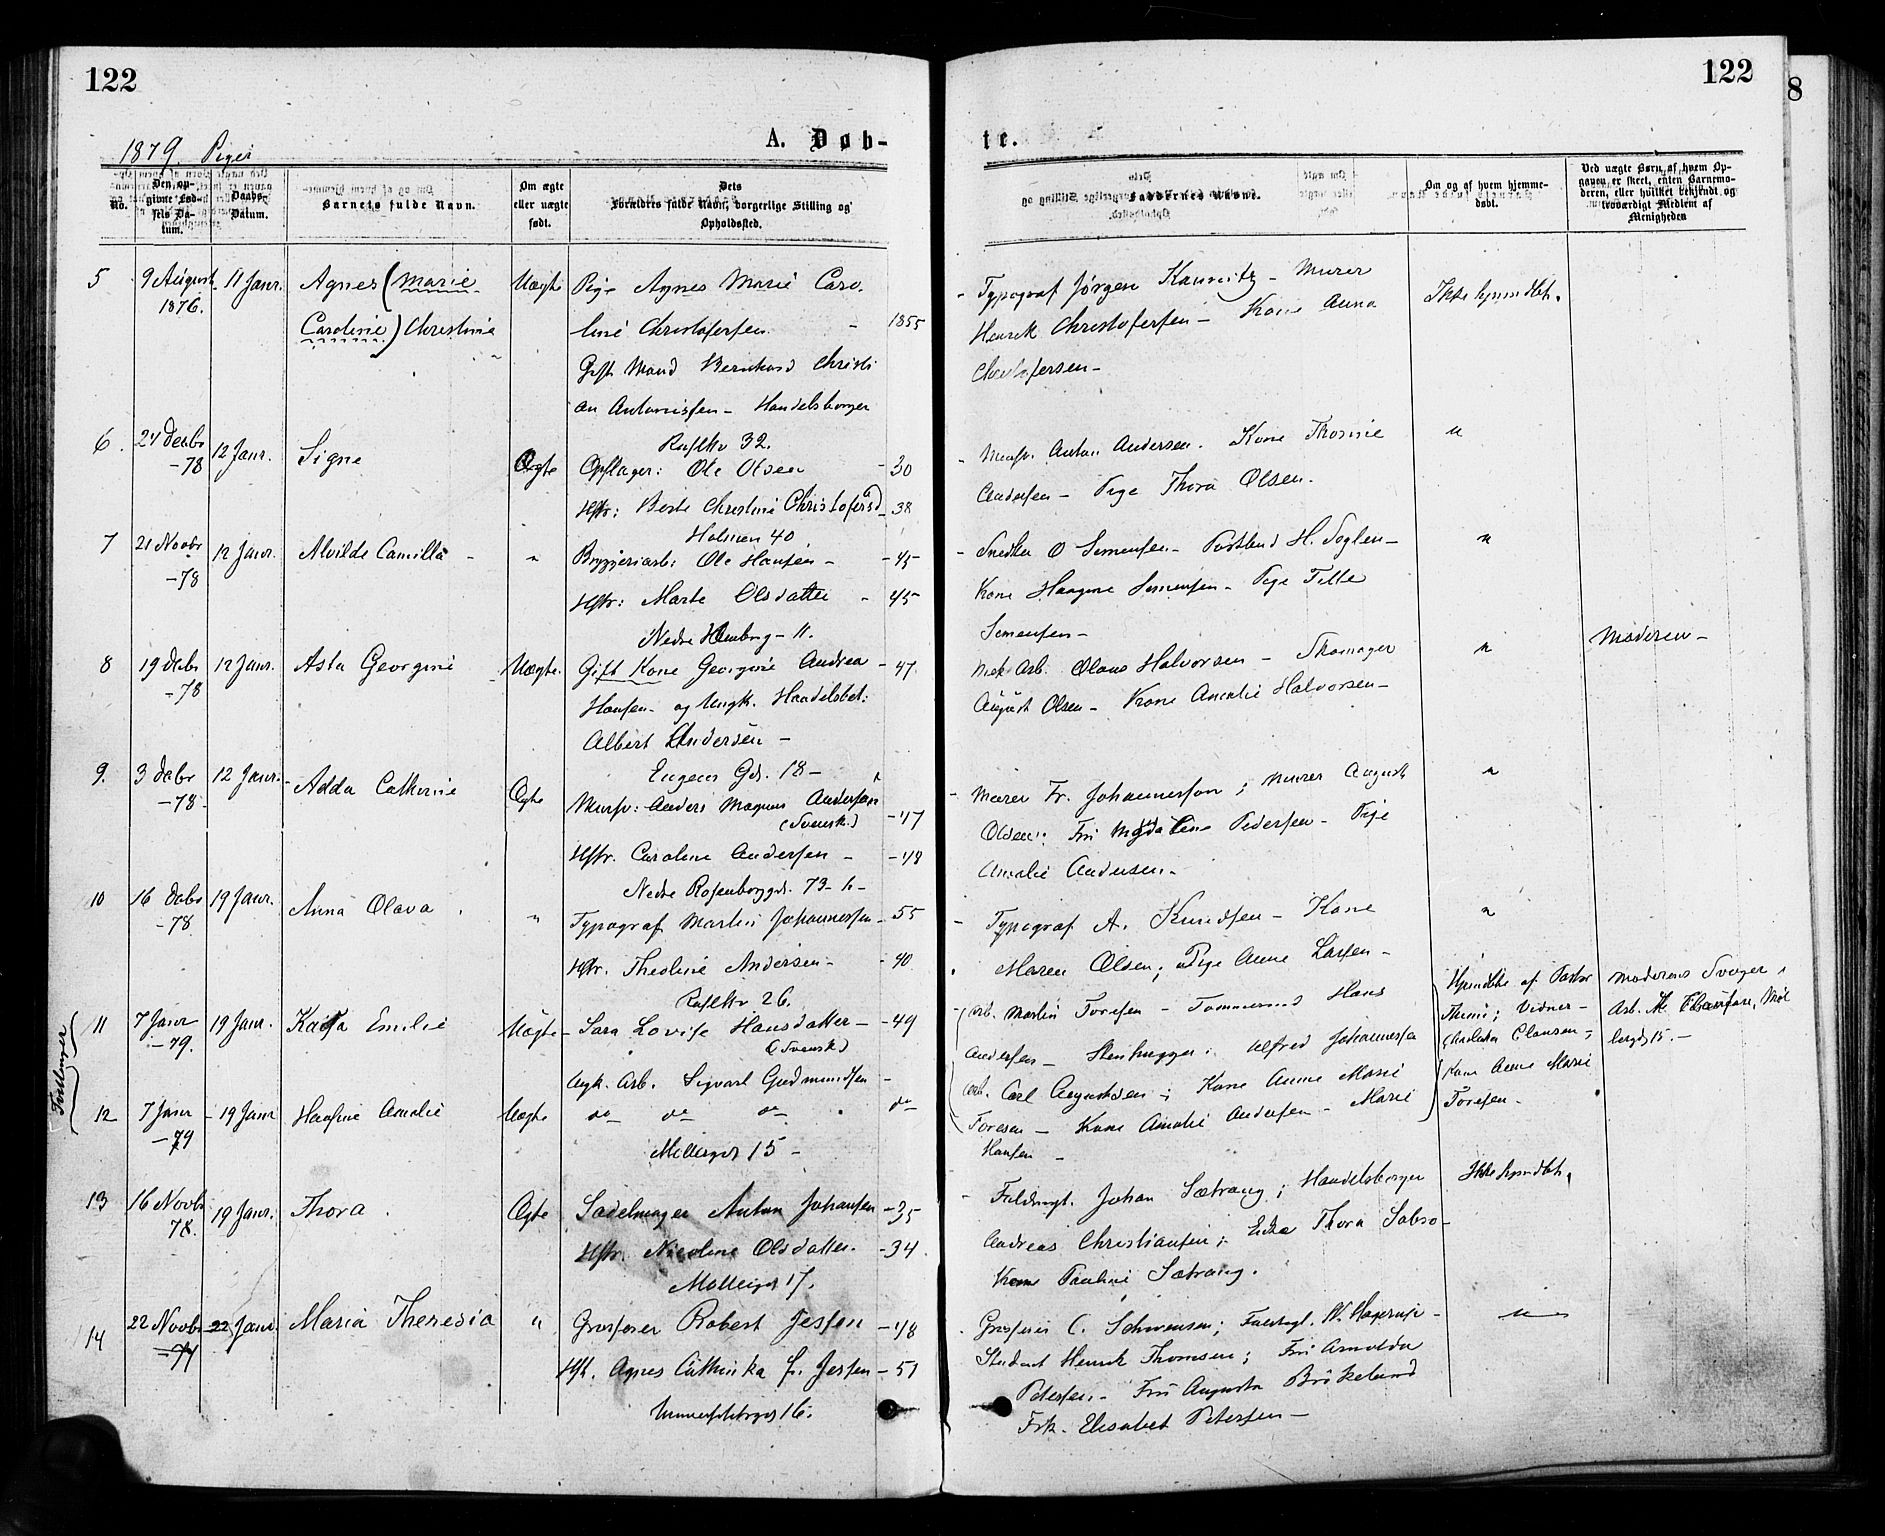 122
122
8
1879. Piger
A. Døb-
te.
No.
Den op-
givne Fød-
sels Da-
tum.
Daabs-
Datum.
Barnets fulde Navn.
Om ægte
eller uægte
født.
Dets
Forældres fulde Navn, borgerlige Stilling og
Opholdssted.
Faddernes Navne.
Om og af hvem hjemme-
døbt.
Ved uægte Børn, af hvem Op-
gaven er skeet, enten Barnemo-
deren, eller hvilket bekjendt og
troværdigt Medlem af
Menigheden
5 9 August 11 Janr. Agnes (Marie Uægte Pige Agnes Marie Caro-
1876. Caroline) Christine line Christofersen 1855
Gift Mand Bernhard Christi
an Antonissen - Handelsborger
32.
- Typograf Jørgen - Murer Ikke hjemdbt.
Henrik Christofersen - Kone Anna
Christofersen -
6. 24 Decbr 12 Janr. Signe Ægte Opsager: Ole Olsen - 30
-78 Hstr: Berte Christine Christofersd - 38
Holmen 40
Anton Andersen. Kone Thomine "
Andersen - Pige Thora Olsen.
7 21 Novbr 12 Janr. Alvilde Camilla - " Bryggeriarb: Ole Hansen - - 45
-78 Hstr: Marte Olsdatter - 45
Nedre - 11.
- Snedker O Simensen - H. - "
Kone Simensen - Pige
Simensen -
8 19 Decbr 12 Janr. Asta Georgine Uægte. Gift Kone Georgine Andrea - 47.
-78 Hansen - og Ungk. Handelsbet:
Albert Andersen -
Eugenes Gd. 18 -
Mek Arb. Olaus Halvorsen - Skomager " Moderen -
August Olsen - Kone Amalie Halvorsen -
9. 3 Decbr 12 Janr. - Adda Catherine Ægte Mursv: Anders Magnus Andersen
-78 (Svensk.) - 47
Hstr. Caroline Andersen - - 48
Nedre Rosenborggd. 73 - b -
- Murer Fr. Johannesson; Murer August "
Olsen: Fru Magdalene Pedersen - Pige
Amalie Andersen -
10 16 Decbr 19 Janr. Anna Olava . " Typograf Martin Johannessen - 55
-78 Hstr. Theoline Andersen - - 40.
26.
- Typograf A. Knudsen - Kone "
Maren Olsen; Pige Anne Larsen -
Tvillinger
11 7 Janr 19 Janr. Emilie Uægte - Sara Lovise Hansdatter - - 49
-79. (Svensk)
Ungk. Arb. Sigvart Gudmundsen -
- Arb. Martin Toresen - Tømmermd Hans
Andersen - Stenhugger: Alfred Johannesen
Arb. Carl Augustsen; Kone Anne Marie
Toresen - Kone Amalie Andersen - Marie
Hansen -
Hjemdbte af Pastor
Thime; Vidner -
Clausen -;
Kone Anne Marie
Toresen -
Moderens Svoger,
Arb. Møl
lergd 15. -
12 7 Janr - 19 Janr Amalie Uægte do do do . do
-79 Møllergd 15 -
13 16 Novbr 19 Janr. Thora . Ægte Sadelmager Anton Johansen - 35
78. Hstr. Nicoline Olsdatter. - 34.
Møllergd 17.
- Fuldmgt. Johan Sætrang; Handelsborger Ikke hjemdbt.
Andreas Christiansen; Enke Thora
Kone Pauline Sætrang.
14 22 Novbr 22 Janr. Maria Theresia " Grosserer Robert Jessen - 48
-77 Hst. Agnes Cathinka f. Jessen - 51
Universitetsgd 16.
Grosserer C. Sørensen; Fuldmgt. W. - "
Student Henrik Thomsen; Fru
Petersen - Fru Augusta
Frk. Elisabet Petersen -